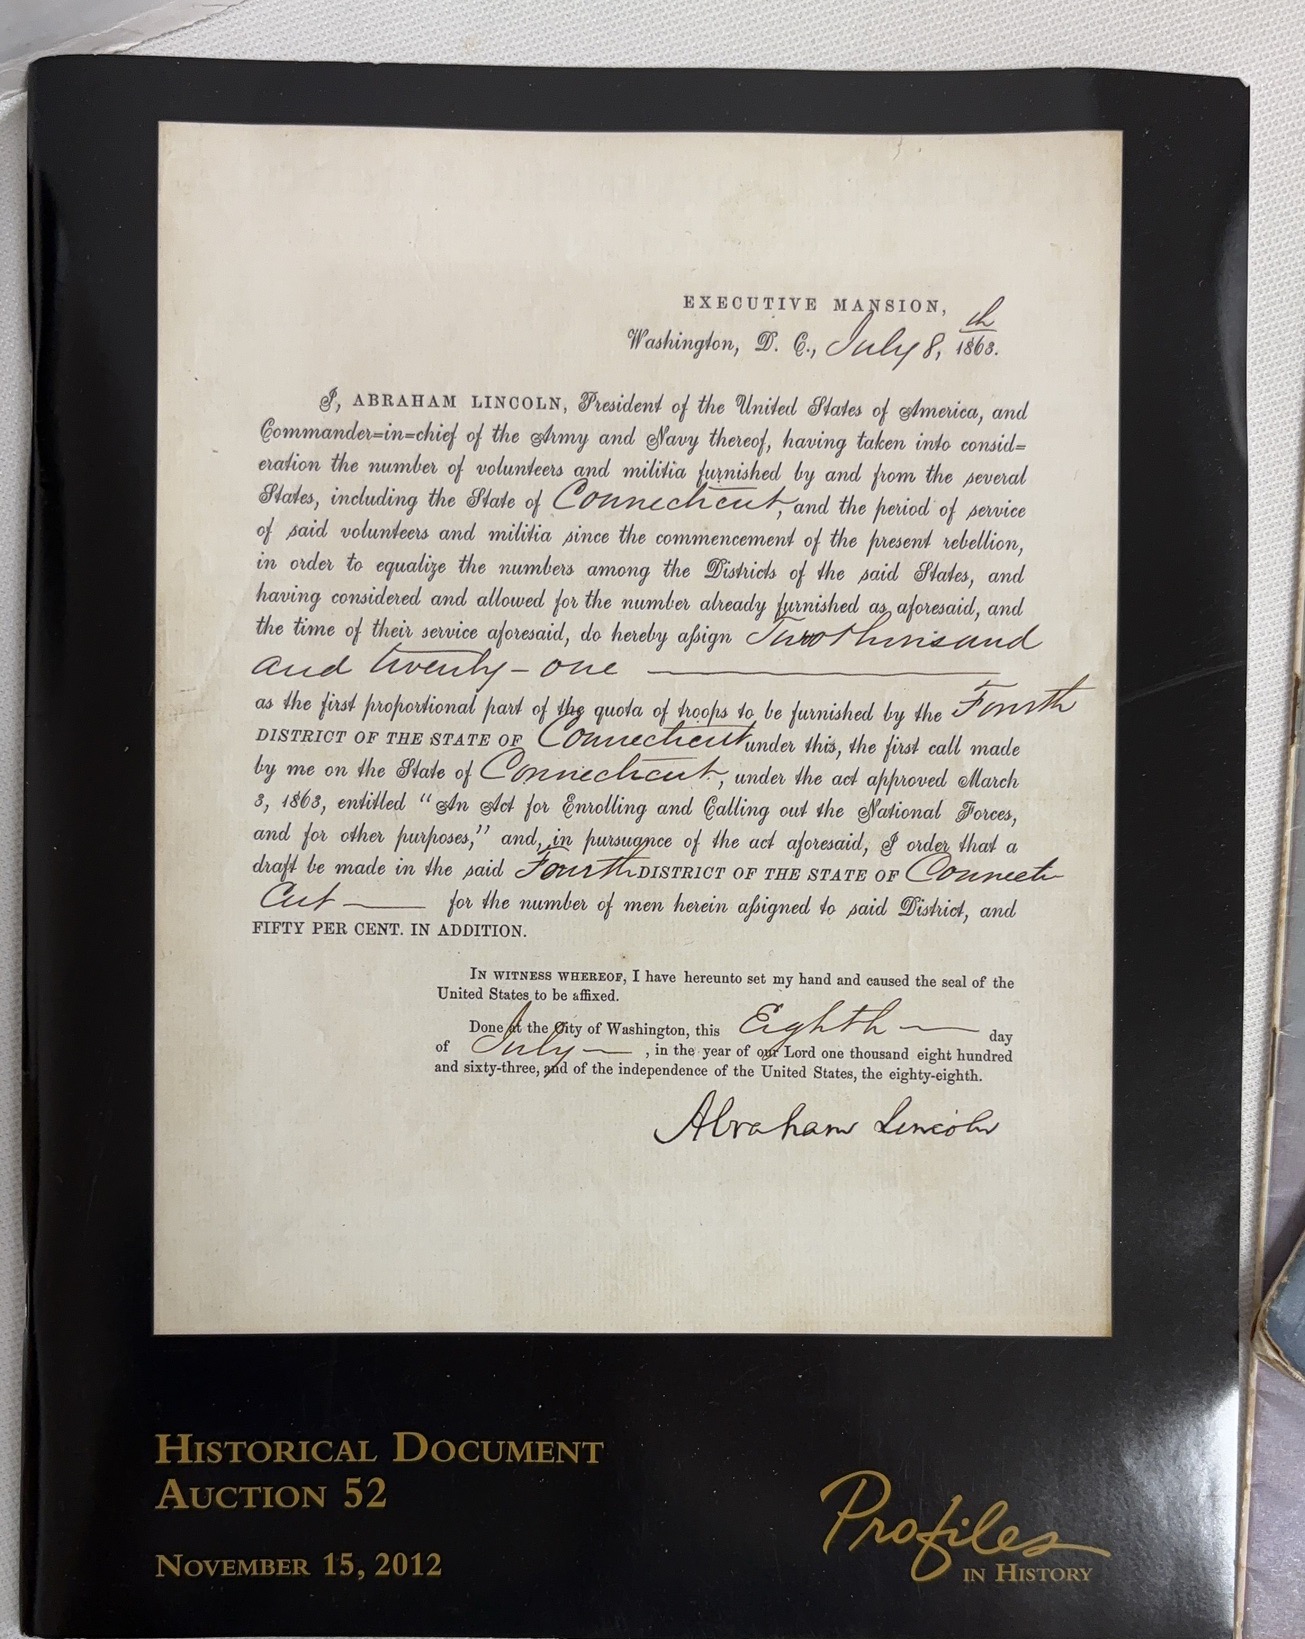 EXECUTIVE MANSION,
Washington, D. C., July 8, th 1863.
I, ABRAHAM LINCOLN, President of the United States of America, and
Commander=in=chief of the Army and Navy thereof, having taken into consid=
eration the number of volunteers and militia furnished by and from the several
States, including the State of Connecticut, and the period of service
of said volunteers and militia since the commencement of the present rebellion,
in order to equalize the numbers among the Districts of the said States, and
having considered and allowed for the number already furnished as aforesaid, and
the time of their service aforesaid, do hereby assign Two thousand
and twenty-one
as the first proportional part of the quota of troops to be furnished by the Fourth
DISTRICT OF THE STATE OF Connecticut under this, the first call made
by me on the State of Connecticut, under the act approved March
3, 1863, entitled “An Act for Enrolling and Calling out the National Forces,
and for other purposes,” and, in pursuance of the act aforesaid, I order that a
draft be made in the said Fourth DISTRICT OF THE STATE OF Connecti
cut — for the number of men herein assigned to said District, and
FIFTY PER CENT. IN ADDITION.
IN WITNESS WHEREOF, I have hereunto set my hand and caused the seal of the
United States to be affixed.
Done at the City of Washington, this Eighth — day
of July —, in the year of our Lord one thousand eight hundred
and sixty-three, and of the independence of the United States, the eighty-eighth.
Abraham Lincoln
HISTORICAL DOCUMENT
AUCTION 52
NOVEMBER 15, 2012
Profiles
IN HISTORY